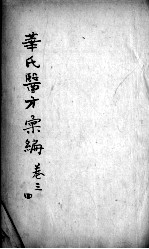 華氏醫方彙編卷三四